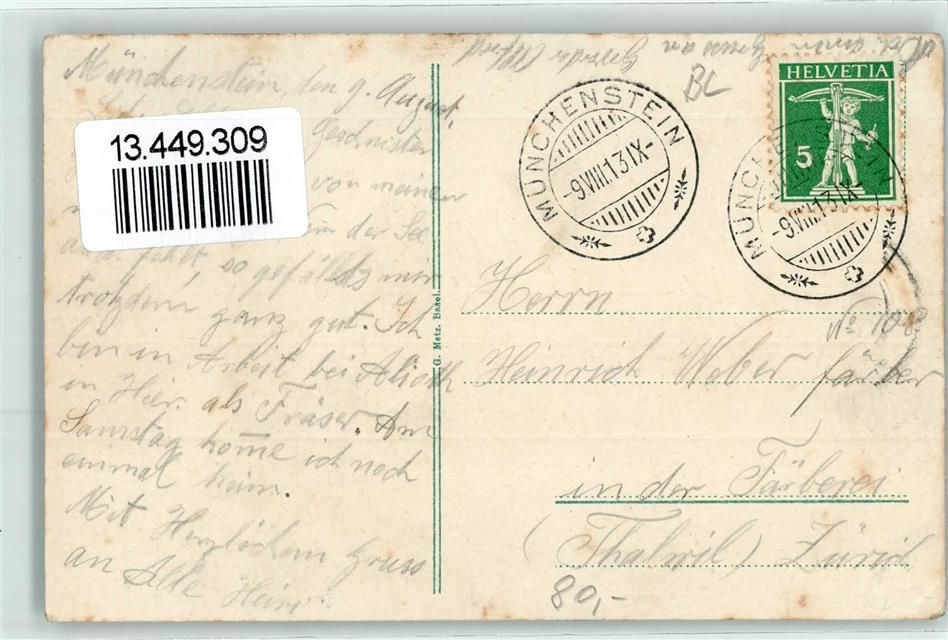 Münchenstein, den 9. August.
Geschwister
von meinen
der See
auch fehlt, so gefällts mir
trotzdem ganz gut. Ich
bin in Arbeit bei Alioth
in Hier. als Fräser. Am
Samstag kom̅e ich noch
einmal heim.
Mit Herzlichem Gruss
an Alle Heiri
13.449.309
G. Metz, Basel.
Gruss an
BL
MÜNCHENSTEIN
-9.VIII.13.IX-
HELVETIA
5
MÜNCHENSTEIN
-9.VIII.13.IX-
Herrn
No 108
Heinrich Weber färber
in der Färberei
(Thalwil) Zürich
80,-